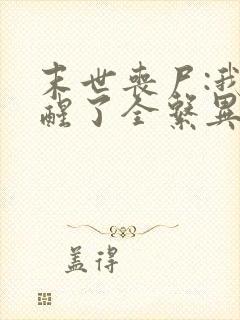 末世丧尸:我
醒了全系异
盖得